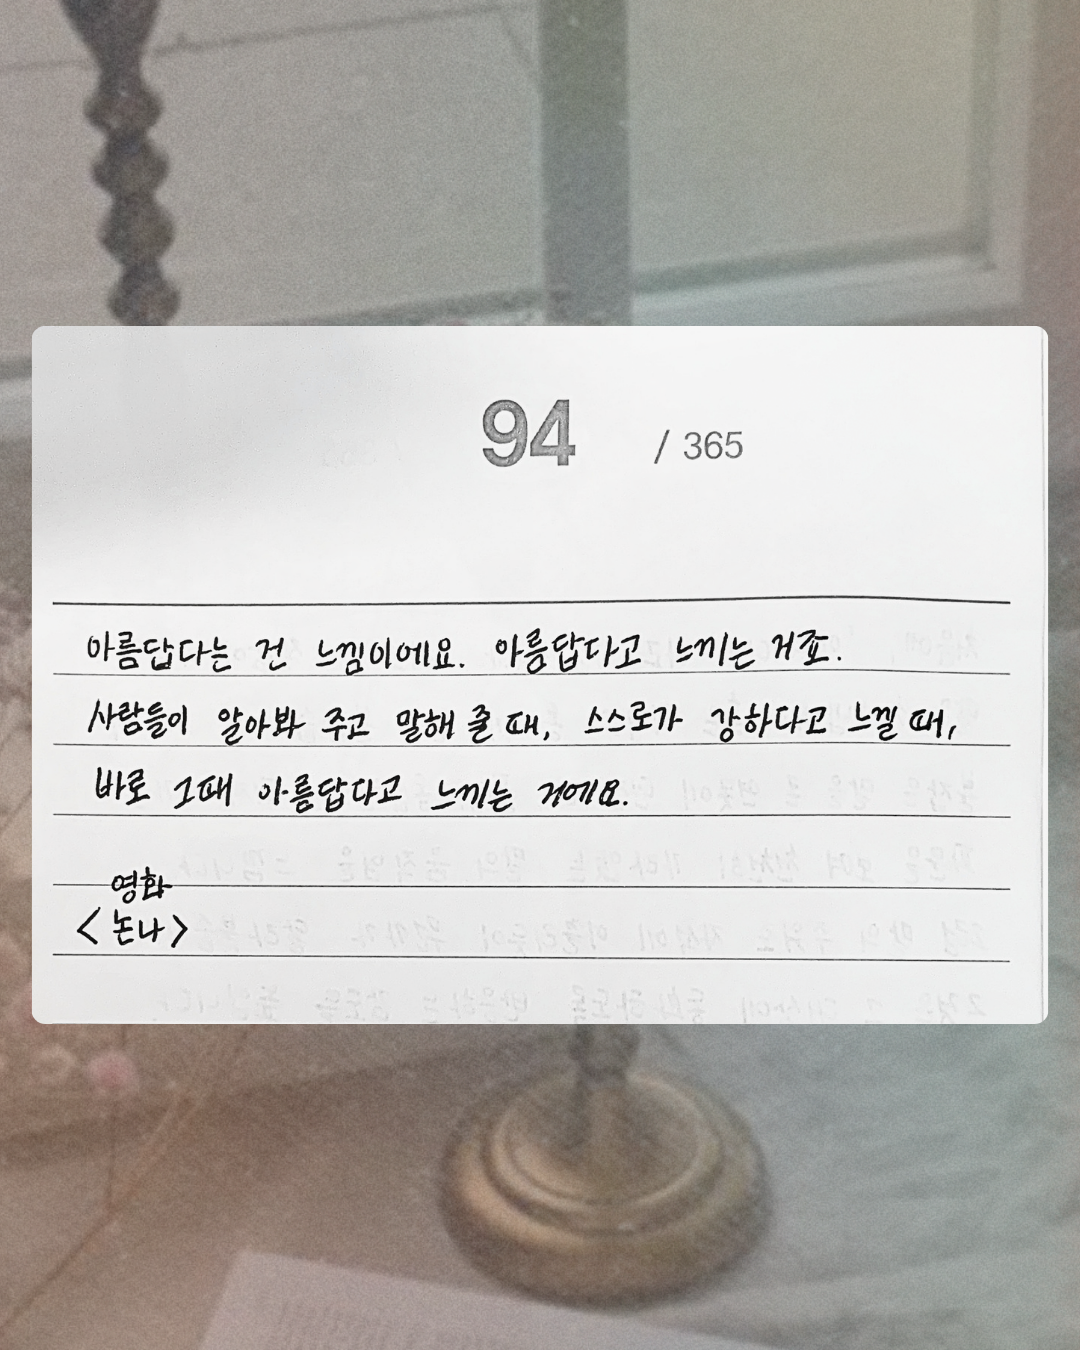 94 / 365
아름답다는 건 느낌이에요. 아름답다고 느끼는 거죠.
사람들이 알아봐 주고 말해 줄 때, 스스로가 강하다고 느낄 때,
바로 그때 아름답다고 느끼는 거에요.
영화
<논나>